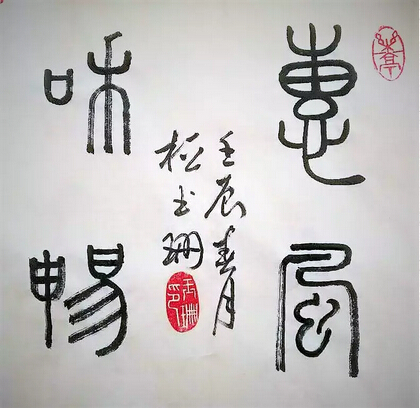 惠風
和暢
壬辰春月
玉珊